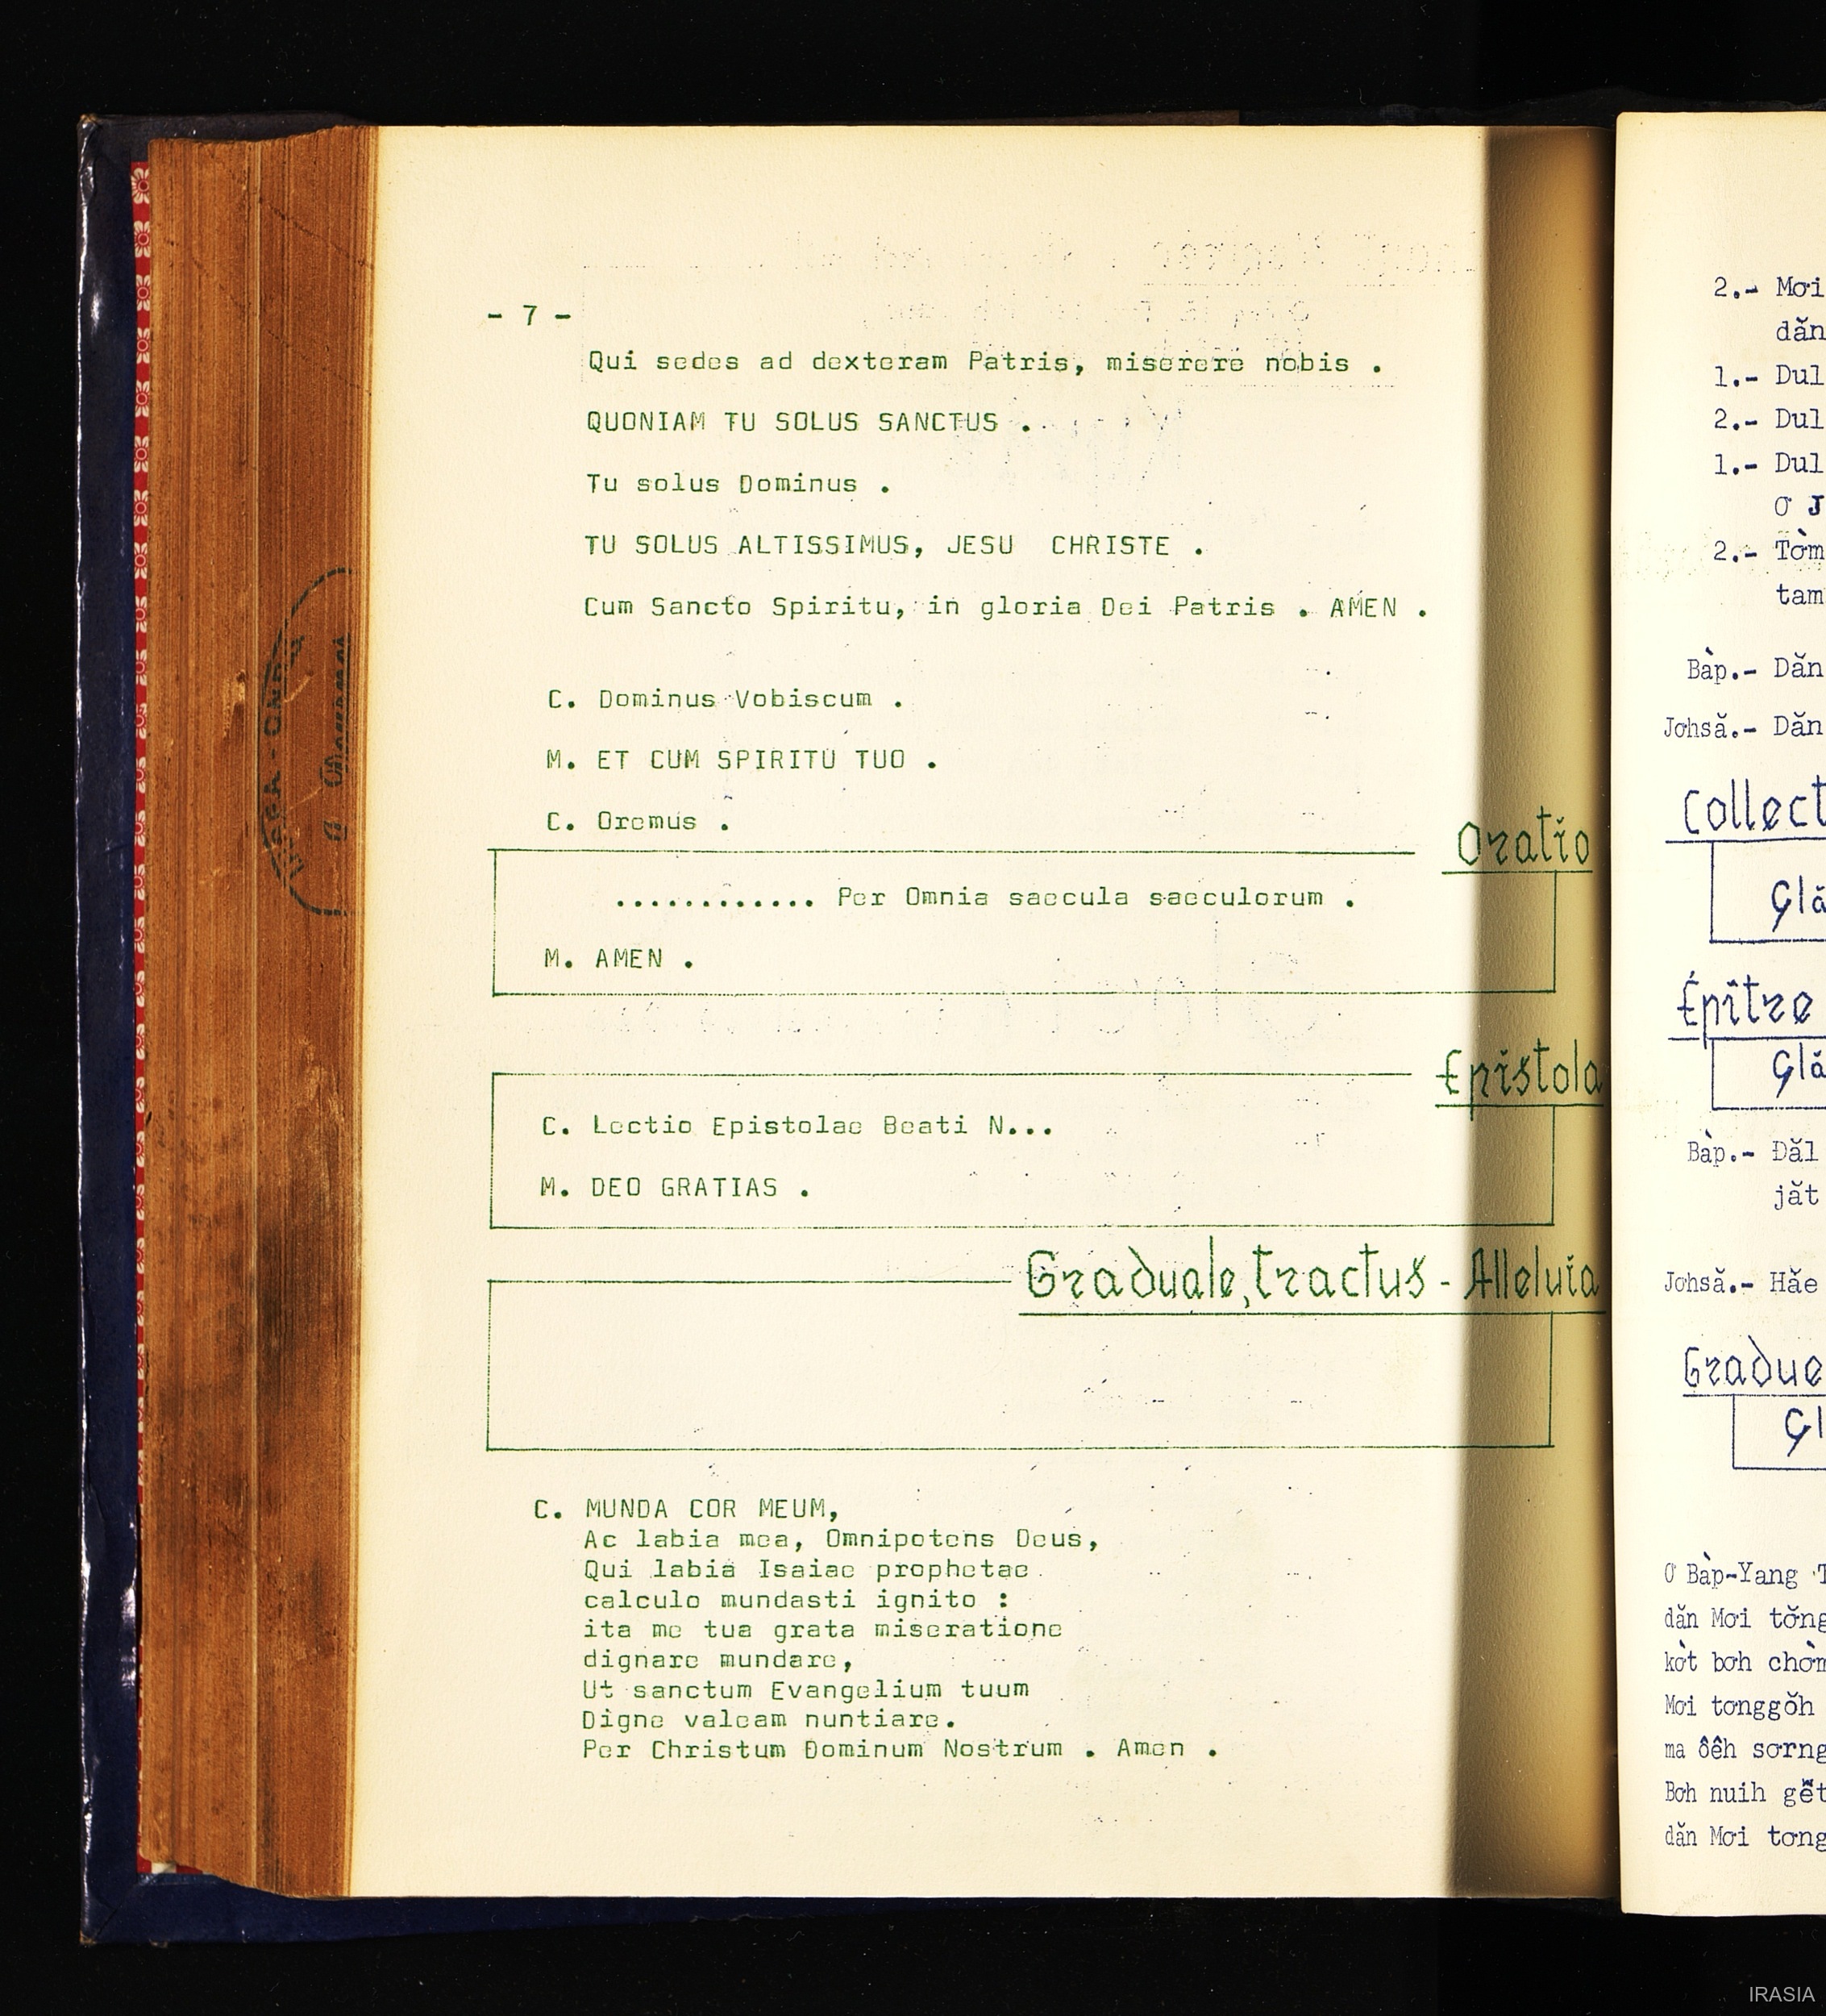 - 7 -
Qui sedes ad dexteram Patris, miserere nobis .
QUONIAM TU SOLUS SANCTUS .
Tu solus Dominus .
TU SOLUS ALTISSIMUS, JESU CHRISTE .
Cum Sancto Spiritu, in gloria Dei Patris . AMEN .
C. Dominus Vobiscum .
M. ET CUM SPIRITU TUO .
C. Oremus .
Oratio
............ Per Omnia saecula saeculorum .
M. AMEN .
Epistola
C. Lectio Epistolae Beati N...
M. DEO GRATIAS .
Graduale, tractus - Alleluia
C. MUNDA COR MEUM,
Ac labia mea, Omnipotens Deus,
Qui labia Isaiae prophetae
calculo mundasti ignito :
ita me tua grata miseratione
dignare mundare,
Ut sanctum Evangelium tuum
Digne valeam nuntiare.
Per Christum Dominum Nostrum . Amen .
2.- Mơi
dăn
1.- Dul
2.- Dul
1.- Dul
Ơ J
2.- Tờm
tam
Bàp.- Dăn
Jơhsă.- Dăn
Collect
Épître
Bàp.- Đăl
jăt
Jơhsă.- Hăe
Gradue
Ơ Bàp-Yang
dăn Mơi tơ̆ng
kờt bơh chờm
Mơi tơnggŏh
ma đêh sơrng
Bơh nuih
dăn Mơi tơng
IRASIA